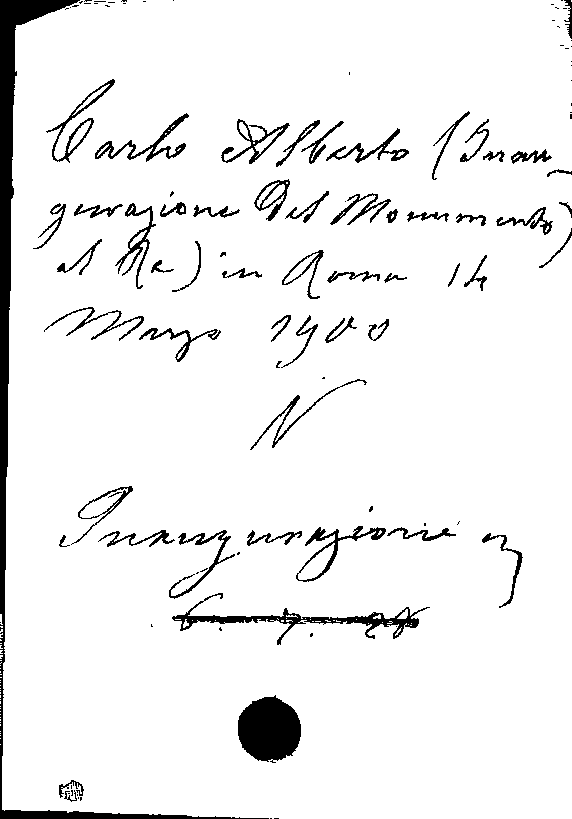 Carlo Alberto (Inau-
gurazione del Monumento)
al Re) in Roma 14
Marzo 1900
N
Inaugurazione